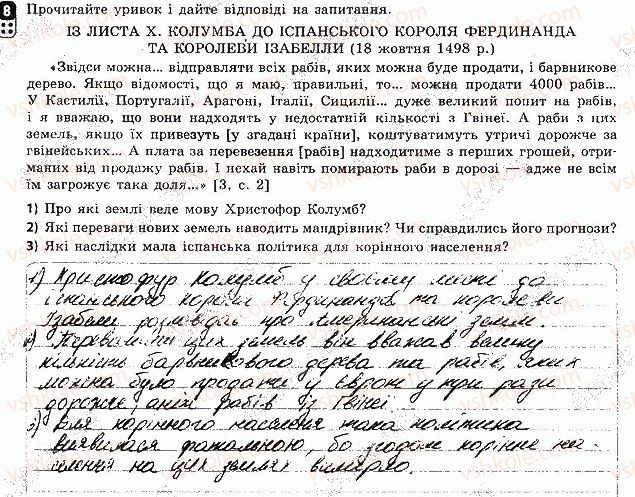 8 Прочитайте уривок і дайте відповіді на запитання.
ІЗ ЛИСТА Х. КОЛУМБА ДО ІСПАНСЬКОГО КОРОЛЯ ФЕРДИНАНДА
ТА КОРОЛЕВИ ІЗАБЕЛЛИ (18 жовтня 1498 р.)
«Звідси можна... відправляти всіх рабів, яких можна буде продати, і барвникове
дерево. Якщо відомості, що я маю, правильні, то... можна продати 4000 рабів...
У Кастилії, Португалії, Арагоні, Італії, Сицилії... дуже великий попит на рабів,
і я вважаю, що вони надходять у недостатній кількості з Гвінеї. А раби з цих
земель, якщо їх привезуть [у згадані країни], коштуватимуть утричі дорожче за
гвінейських... А плата за перевезення [рабів] надходитиме з перших грошей, отри-
маних від продажу рабів. І нехай навіть помирають раби в дорозі — адже не всім
їм загрожує така доля...» [3, с. 2]
1) Про які землі веде мову Христофор Колумб?
2) Які переваги нових земель наводить мандрівник? Чи справдилися його прогнози?
3) Які наслідки мала іспанська політика для корінного населення?
1) Христофор Колумб у своєму листі до
іспанського короля Фердинанда та королеви
Ізабели розповідав про Американські землі.
2) Перевагами цих земель він вважав велику
кількість барвникового дерева та рабів, яких
можна було продати у Європі у три рази
дорожче, аніж рабів із Гвінеї
3) Для корінного населення така політика
виявилася фатальною, бо згодом корінне на-
селення на цих землях вимерло.